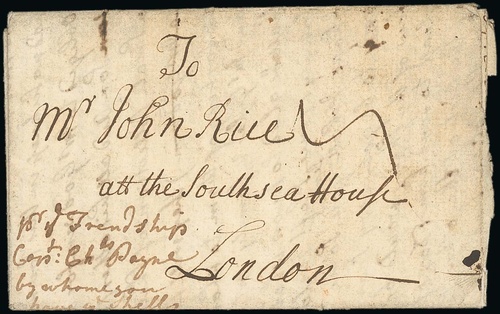 To
Mr John Rice
att the Southsea House
London
pr ye Friendship
Capt: Chs Payne
by whome you
have ye Shells